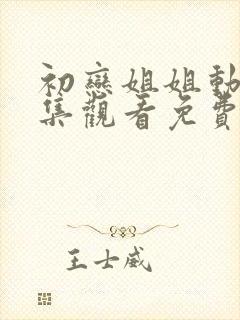 初戀姐姐動
集觀看免費
王士威